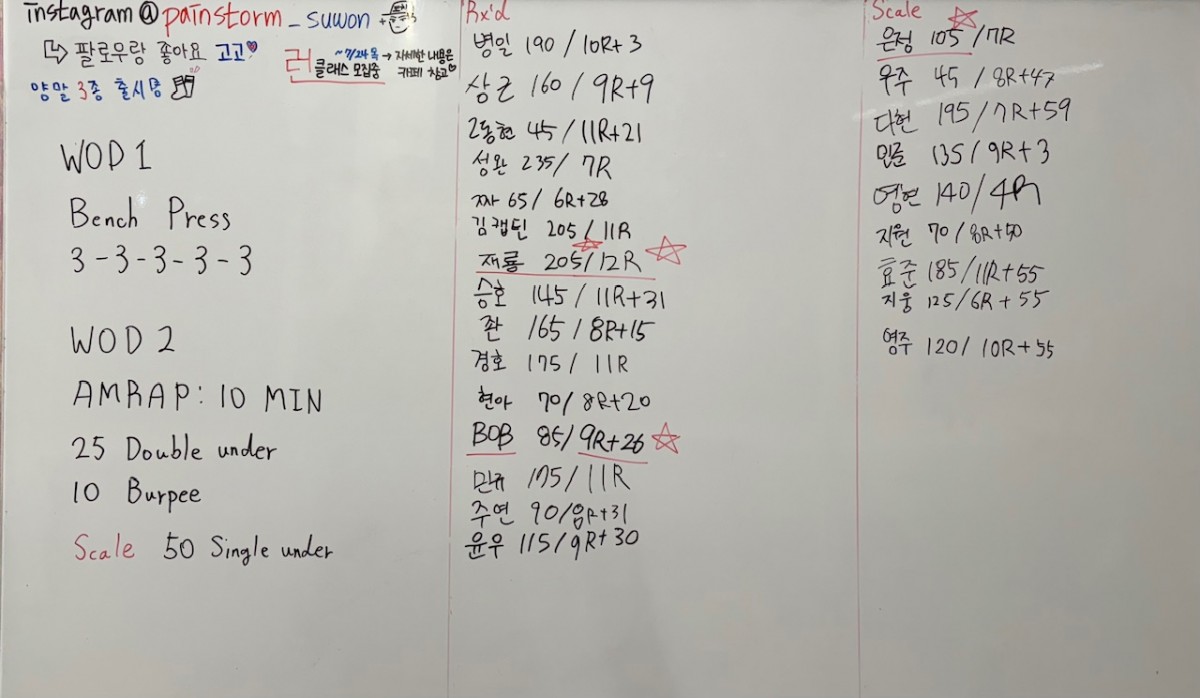 instagram@painstorm_suwon
팔로우랑 좋아요 고고♥
양말 3종 출시중
런 클래스 모집중
~7/24 목 → 자세한 내용은
카페 참고♥
WOD 1
Bench Press
3-3-3-3-3
WOD 2
AMRAP: 10 MIN
25 Double under
10 Burpee
Scale 50 Single under
Rx'd
병일 190 / 10R+3
상근 160 / 9R+9
2동현 45 / 11R+21
성완 235 / 7R
짜 65 / 6R+28
김캡틴 205 / 11R
재룡 205/12R
승호 145 / 11R+31
좐 165 / 8R+15
경호 175 / 11R
현아 70/ 8R+20
BOB 85/ 9R+26
민규 175/ 11R
주연 90/ +31
윤우 115/9R+30
Scale
은정 105 / 7R
우주 45 / 8R+47
다현 195/7R+59
민준 135/9R+3
영현 140/4R
지원 70/8R+50
효준 185/11R+55
지웅 125/6R+55
영주 120/ 10R+55